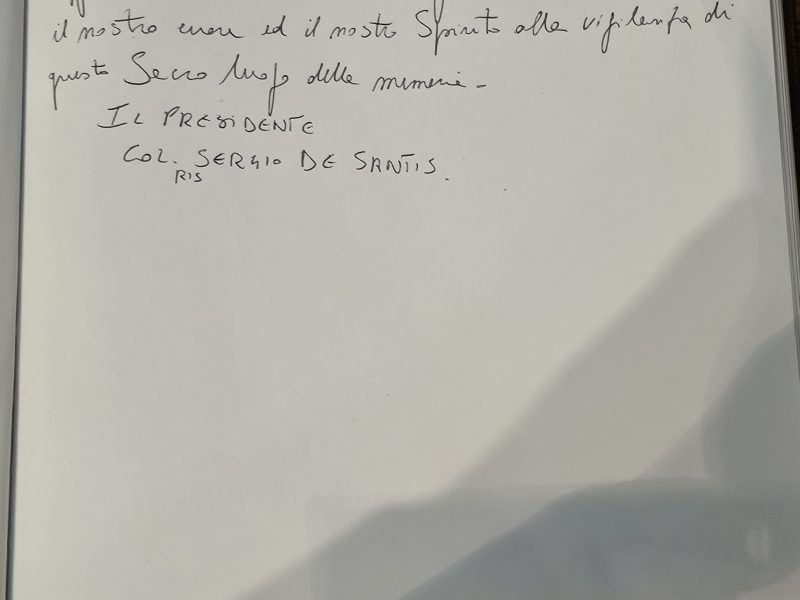 il nostro cuore ed il nostro Spirito alla vigilanza di
questo Sacro luogo della memoria -
IL PRESIDENTE
COL. SERGIO DE SANTIS.
RIS